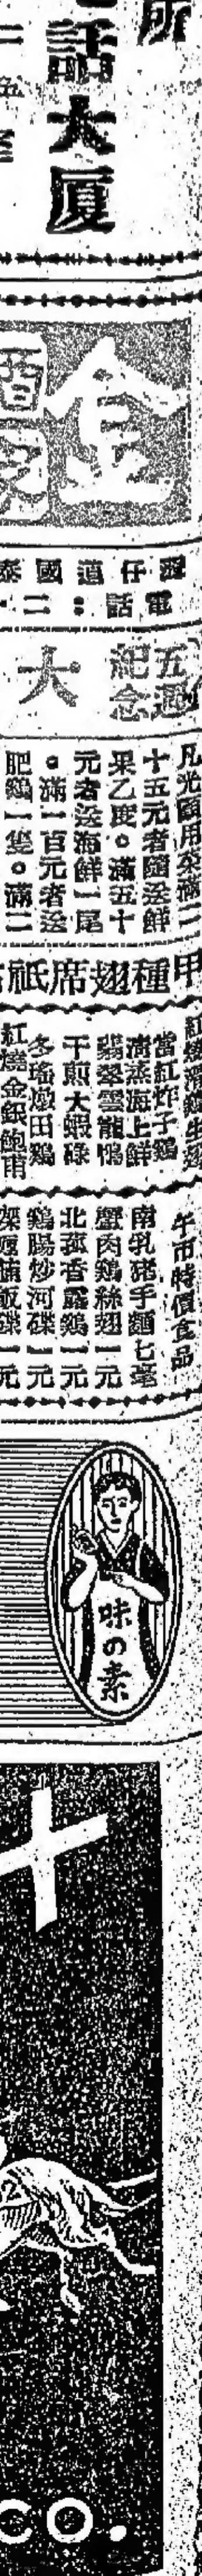 所
話大厦
金
酒
灣仔道國泰
電話：二
五週
紀念
大
凡光顧用本滿二
十五元者隨送鮮
果乙度。滿五十
元者送海鮮一尾
。滿一百元者送
肥鷄一隻。滿二
甲種翅席祇
當紅炸子鷄
清蒸海上鮮
翡翠雲龍鴿
干煎大蝦碌
田鷄
紅燒金銀鮑甫
午市特價食品
南乳猪手麵七毫
蟹肉鷄絲翅一元
北菰香露鷄一元
鷄腸炒河碟一元
飯碟一元
味の素
CO.